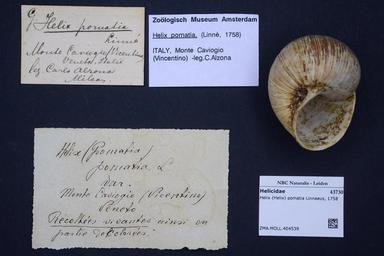 G/ Helix pomatia
Linné
Monte Caviogio (Vicentino)
Veneto. Italie
leg. Carlo Alzona
Zoölogisch Museum Amsterdam
Helix pomatia, (Linnè, 1758)
ITALY, Monte Caviogio
(Vincentino) -leg.C.Alzona
Helix (Pomatia)
pomatia L.
Var.
Monte Caviogio (Vicentino)
Veneto
Recoltées vivantes ainsi en
partie décolorées.
NBC Naturalis - Leiden
Helicidae
43730
Helix (Helix) pomatia Linnaeus, 1758
ZMA.MOLL.404539